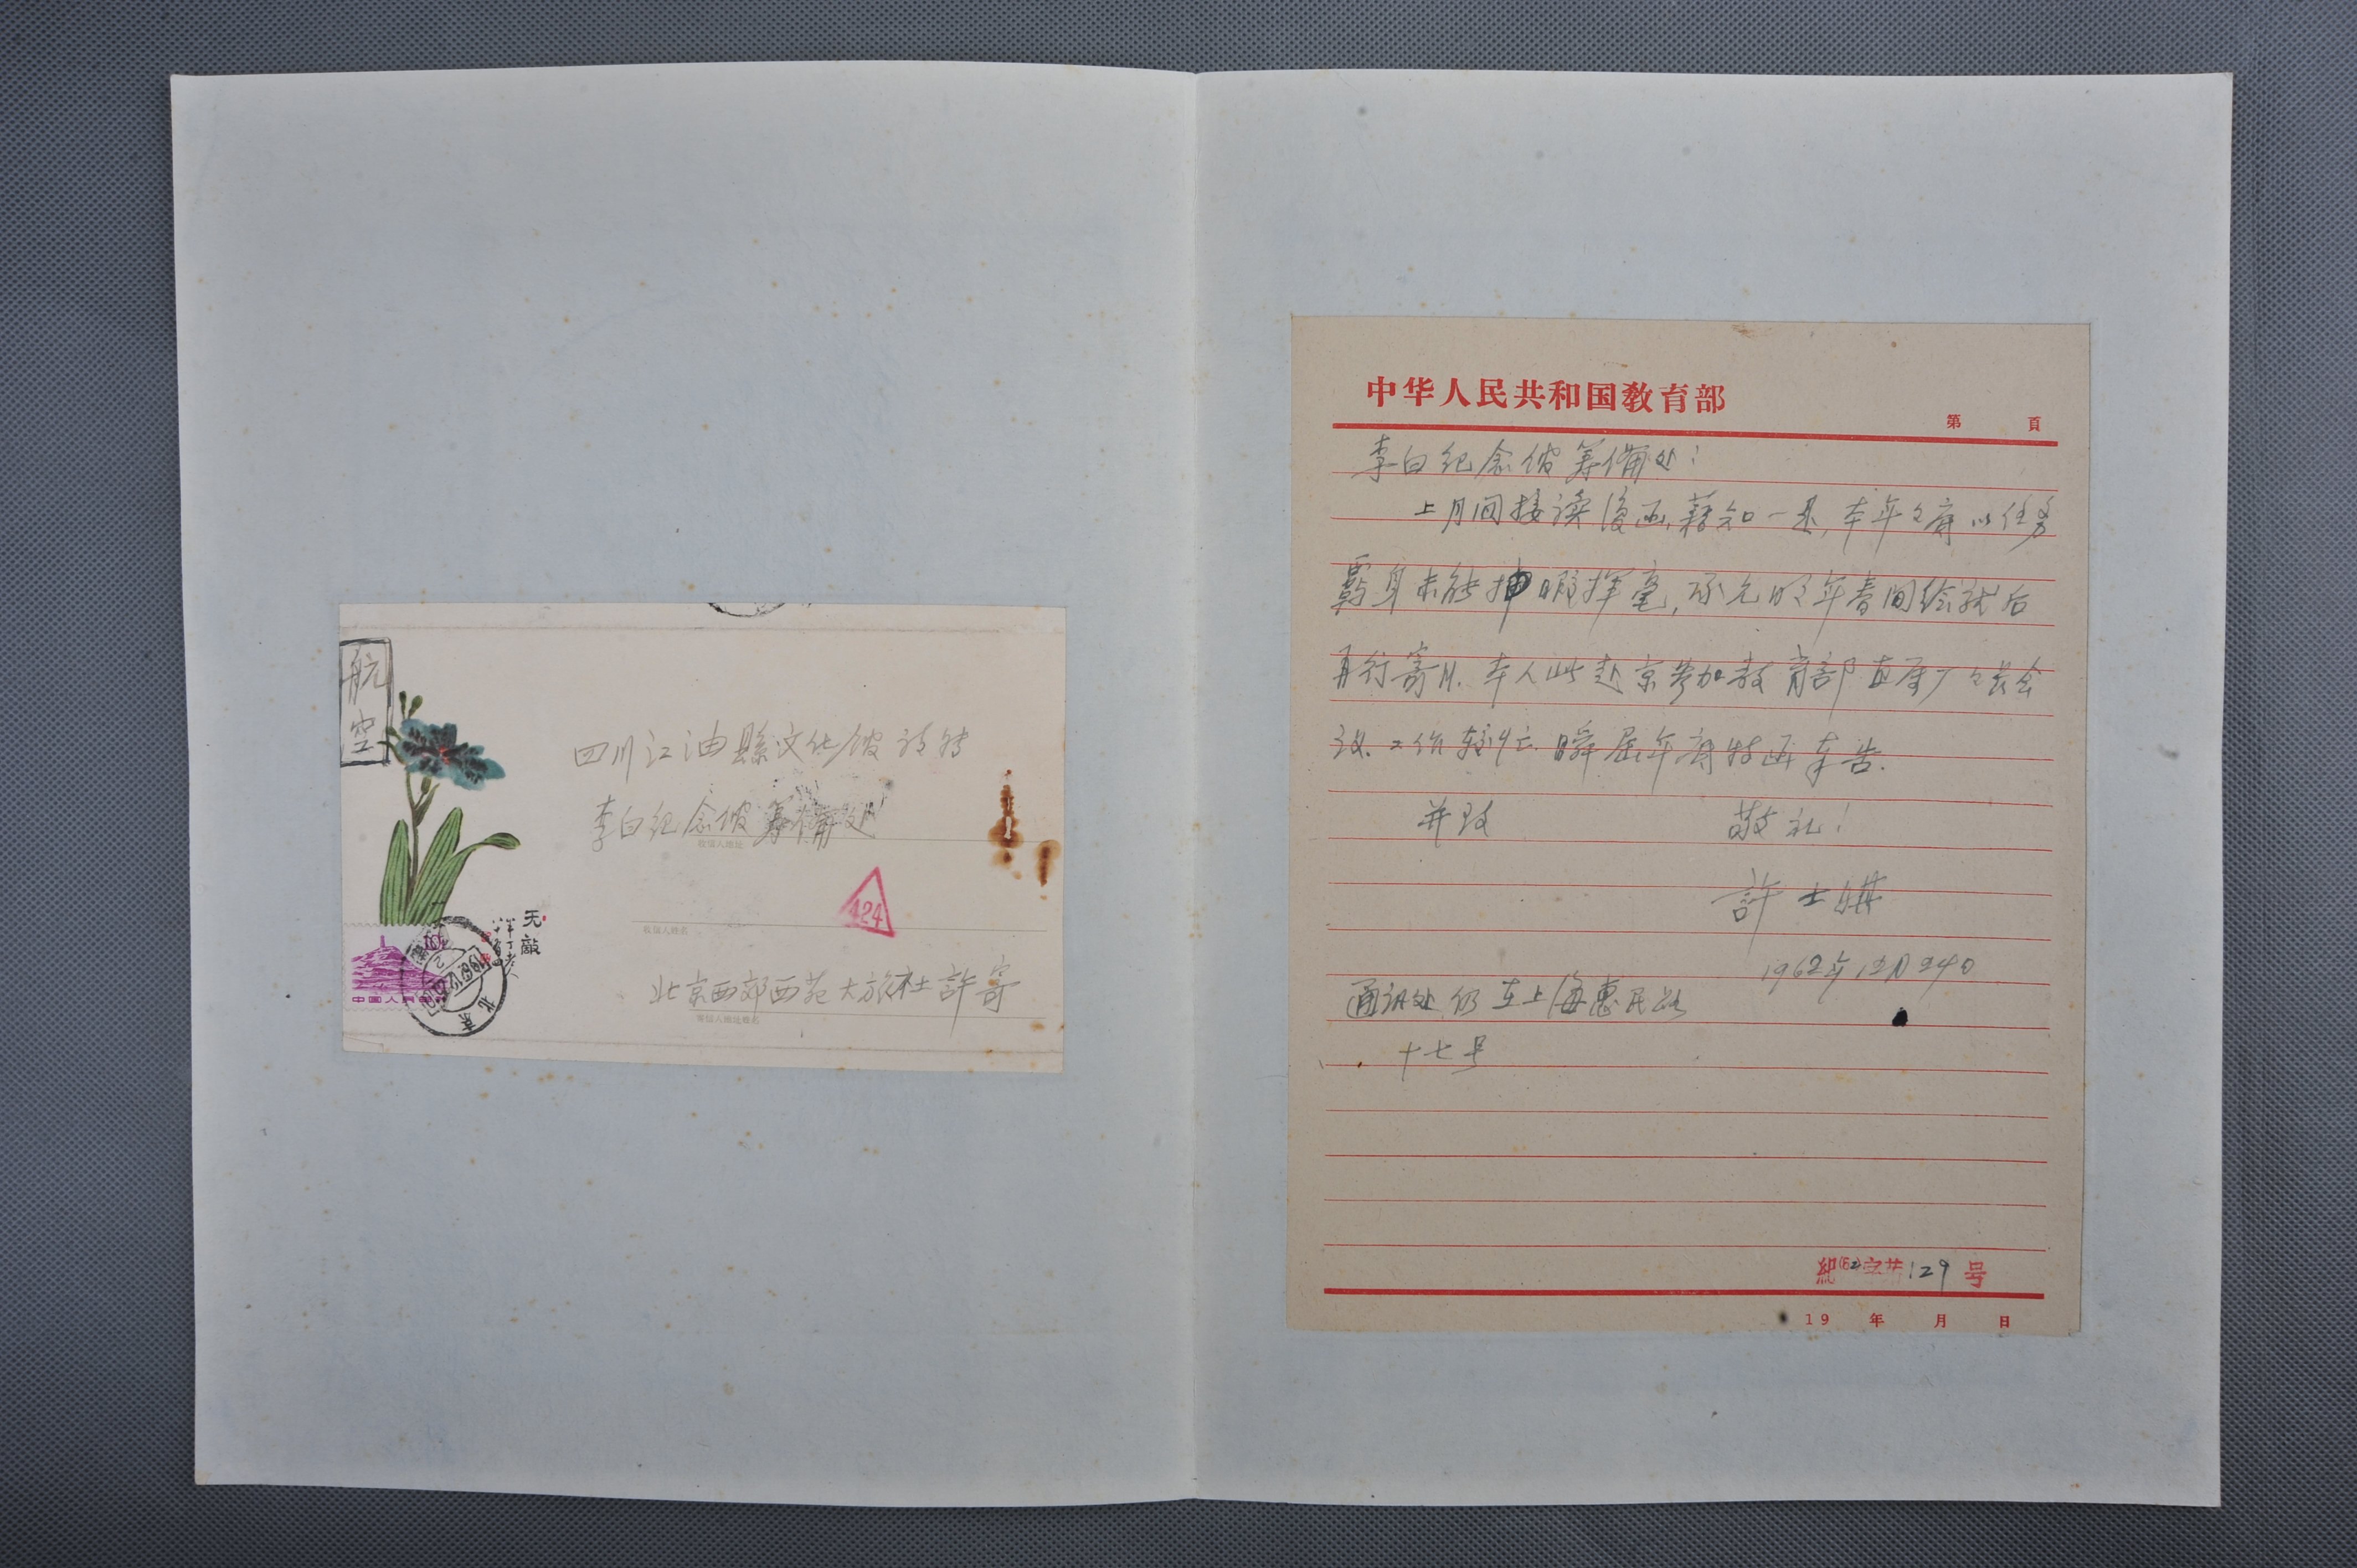 航空
四川江油縣文化馆请转
李白纪念馆筹備处
收信人地址
收信人姓名
424
无敵
中國人民邮政
北京
北京西郊西苑大旅社許寄
寄信人地址姓名
中华人民共和国教育部
第 頁
李白纪念馆筹備处:
上月间接读復函,藉知一是,本年之底以任务
羁身未能抽暇挥毫,承允明年春间绘就后
再行寄川.本人此赴京参加教育部直属厂厂长会
议.工作较忙.瞬届年底特函奉告.
并致 敬礼!
許士骐
1962年12月24日
通讯处仍在上海惠民路
十七号
紀(62)字第129号
19 年 月 日